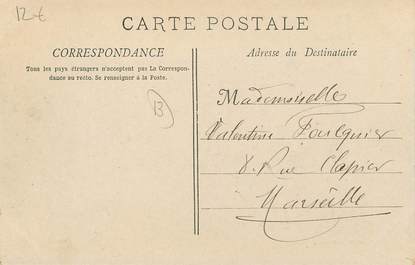 12 €
CARTE POSTALE
CORRESPONDANCE
Tous les pays étrangers n'acceptent pas La Correspon-
dance au recto. Se renseigner à la Poste.
Adresse du Destinataire
13
Mademoiselle
Valentine Foulquier
8 Rue Clapier
Marseille